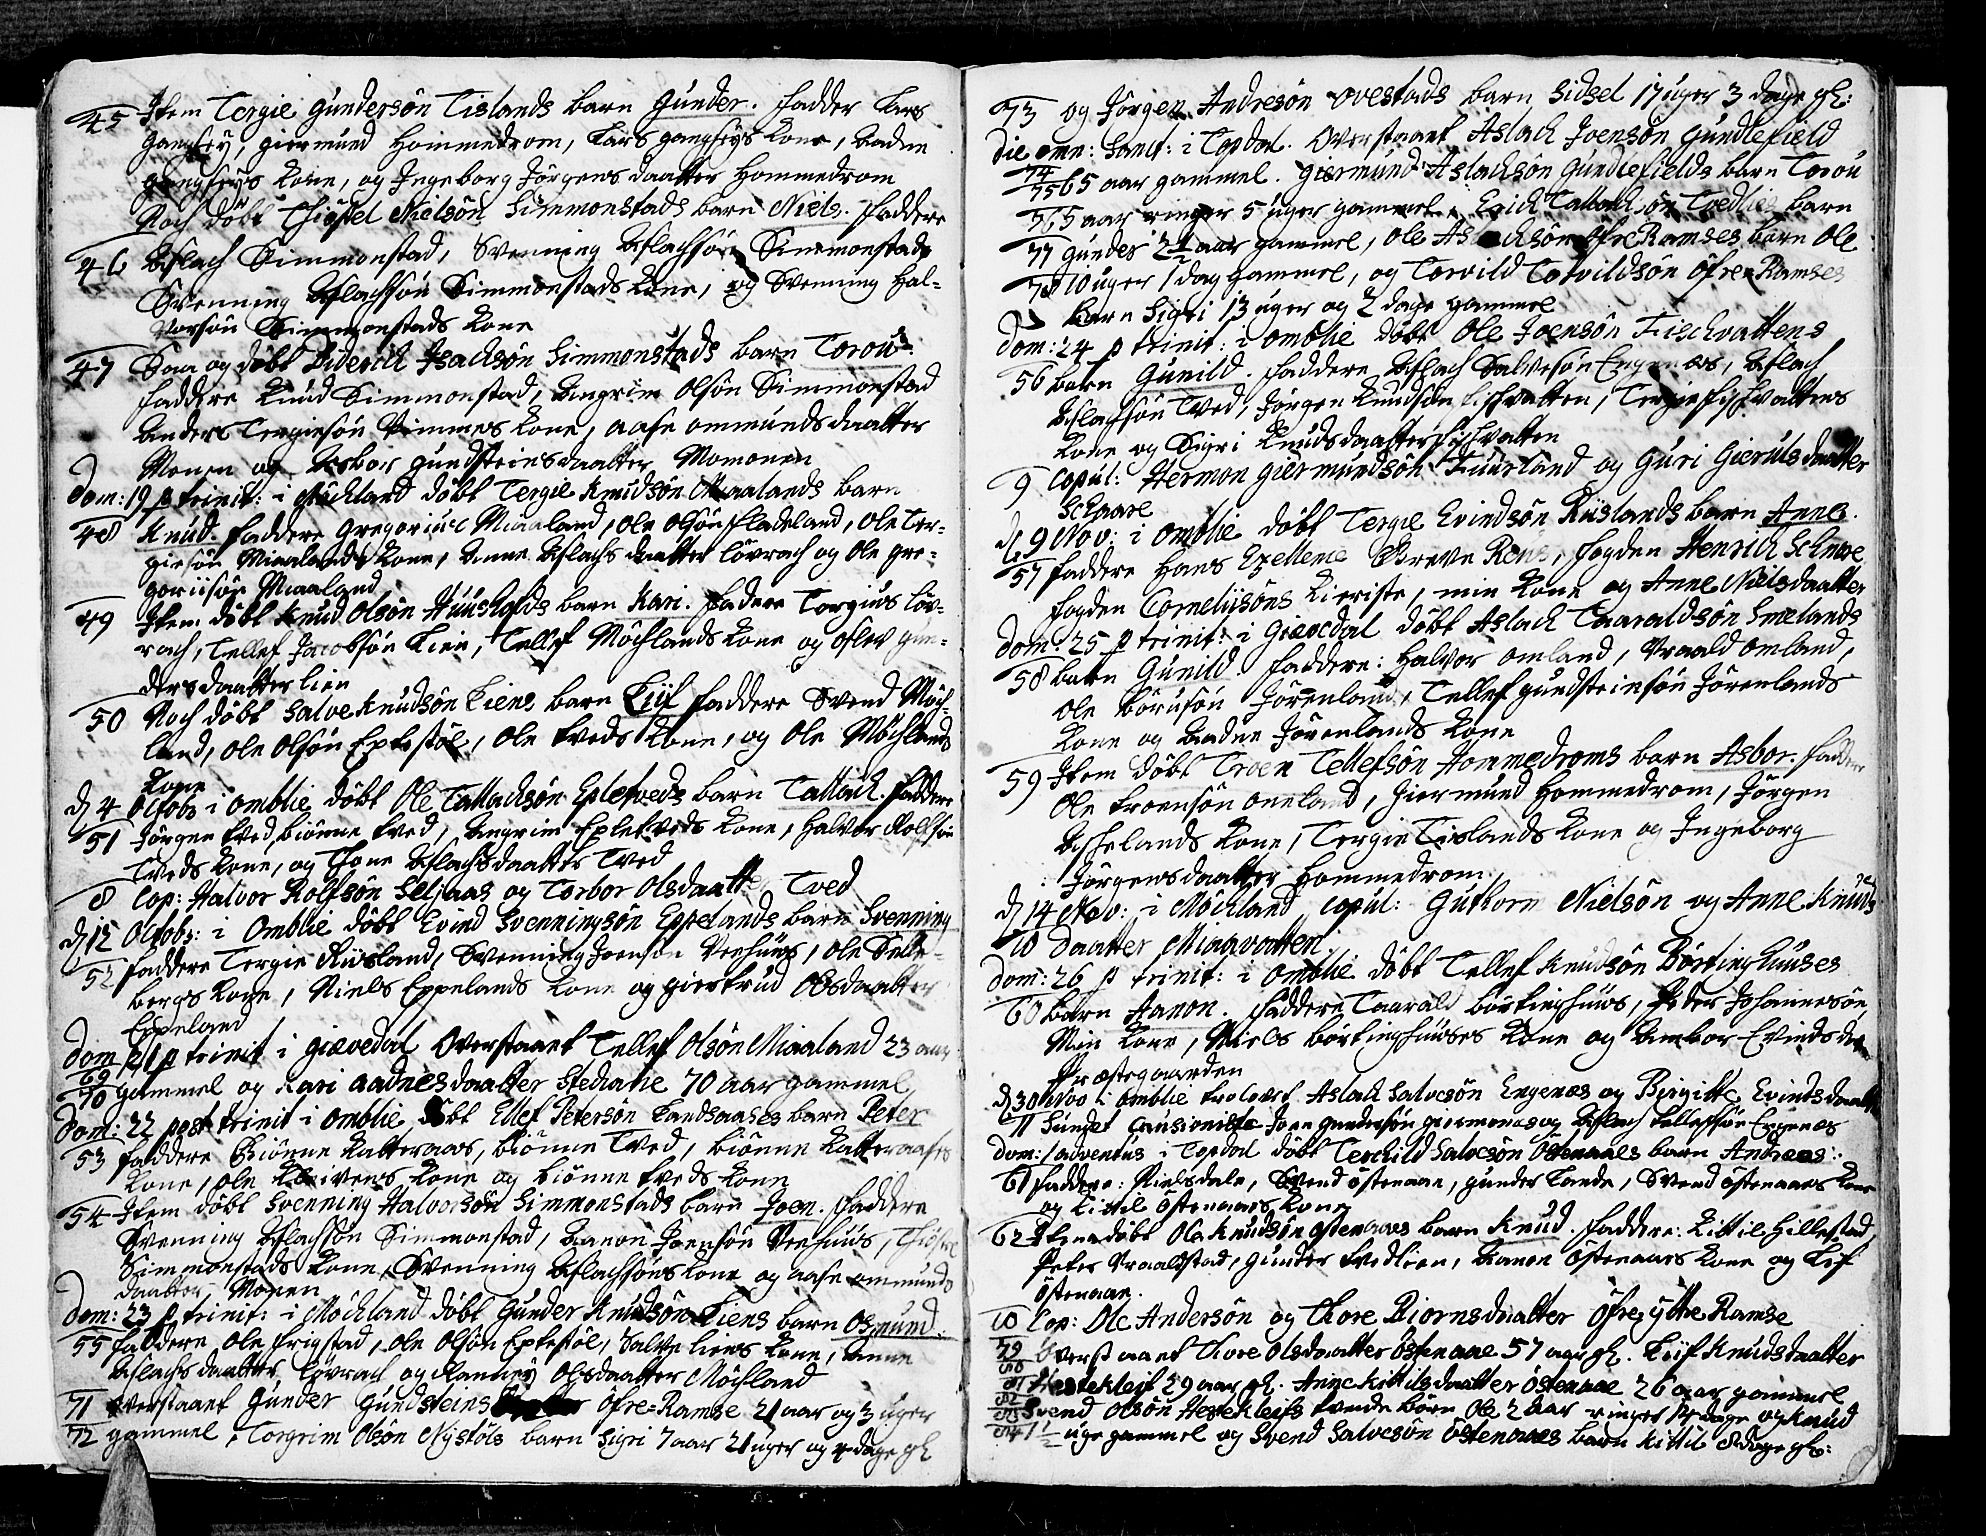 45 Item Tergie Gundersön Tislands barn Gunder. Fadder Lars
Gangsey, Giermund Hommedrom, Lars Gangseys Kone, Aadne
Gangseys Kone, og Ingeborg Jörgens daatter Hommedrom
Noch döbt Thiöstel Nielsön Simmonstads barn Niels. Faddere
46 Aslach Simmonstad, Svenning Aslachsön Simmonstad
Svenning Aslachsön Simmonstads Kone, og Svenning Hal-
vorsön Simmonstads Kone
47 Saa og döbt Diderich Isachsön Simmonstads barn Torou.
Faddere Knud Simmonstad, Angrim Olsön Simmonstad
Anders Tergiesön Vimmes Kone, Aase Ommunds daatter
Monen og Asbor Gundsteins daatter Momonen
Dom: 19 p trinit: i Möchland döbt Tergie Knudsön Miaalands barn
48 Knud. Faddere Gregorius Miaaland, Ole Olsön Fladeland, Ole Ter-
giesön Miaalands Kone, Anne Aslachs daatter Lövrach og Ole Gre-
goriisön Miaaland
49 Item döbt Knud Olsön Huusholds barn Kari. Faddere Torgius Löv-
rach, Tellef Jacobsön Lien, Tellef Möchlands Kone og Oslev Gun-
ders daatter Lien
50 Noch döbt Salve Knudsön Liens barn Liif Faddere Svend Möch-
land, Ole Olsön Eptestöl, Ole Tveds Kone, og Ole Möchlands
Kone
d 4 Octobr i Omblie döbt Ole Tallachsön Epletveds barn Tallach. Faddere
51 Jörgen Tved, Biönne Tved, Angrim Epletveds Kone, Halvor Rolfsön
Tveds Kone, og Thone Aslachs daatter Tved
8 Cop: Halvor Rolfsön Seljaas og Torbor Olsdaatter Tved
d 12 Octobr: i Omblie döbt Evind Svenningsön Eppelands barn Svenning
52 Faddere Tergie Riisland, Svenning Joensön Veehuus, Ole Selle-
bergs Kone, Niels Eppelands Kone og Giertrud Olsdaatter
Eppeland
Dom 21 p trinit i Giævedal Overstaaet Tellef Olsön Miaaland 23 aar
69
70 gammel og Kari Aadnesdaatter Stediane 70 aar gammel
Dom: 22 post trinit i Omblie döbt Ellef Petersön Landsaases barn Peter
53 Faddere Biönne Katteraas, Biönne Tved, Biönne Katteraases
Kone, Ole Kleivens Kone og Biönne Tveds Kone
54 Item döbt Svenning Halvorsön Simmonstads barn Joen. Faddere
Svenning Aslachsön Simmonstad, Aanon Joensön Veehuus,
Simmonstads Kone, Svenning Aslachsöns Kone og Aase Ommunds
daatter Monen
Dom: 23 p trinit: i Möchland döbt Gunder Knudsön Liens barn Osmund.
55 Faddere Ole Frigstad, Ole Olsön Eptestöl, Salve Liens Kone, Anne
Aslachs daatter Lövrach og Ranney Olsdaatter Möchland
71 Overstaaet Gunder Gundsteins Öfre=Ramse 21 aar og 3 uger
72 gammel, Torgrim Olsön Nystöls barn Sigri 7 aar 21 uger og dage gl
73 og Jörgen Andresön Ovestads barn Sidsel 17 uger 3 dage gl:
Die omn: Sanct: i Topdal. Overstaaet Aslach Joensön Gundlefield
74
75 65 aar gammel. Giermund Aslachsön Gundlefields barn Torou
76 5 aar ringer 5 uger gammel, Erich Tallachsön Tvedlies barn
77 Gunder 2 1/2 aar gammel, Ole Aslachsön Öfre Ramses barn Ole
78 10 uger 1 dag gammel, og Torvild Torvildsön Öfre Ramses
barn Sigri 13 uger og 2 dage gammel
Dom: 24 p trinit: i Omblie döbt Ole Joensön Fischvattens
56 barn Gunild. Faddere Aslach Salvesön Engenæs, Aslach
Aslachsön Tved, Jörgen Knudsön Fischvatten, Tergie Fischvattens
Kone og Sigri Knudsdaatter Fischvatten
9 Copul: Hermon Giermundsön Fuurland og Guri Gieruls daatter
Schaare
d 9 Nov: i Omblie döbt Tergie Evindsön Riislands barn Anne.
57 Faddere Hans Excellence Greve, Fogden Henrich Schnee
Fogden Corneliisöns Kieriste, min Kone og Anne Nielsdaatter
Dom: 25 p trinit: i Giævedal döbt Aslach Taaraldsön Smelands
58 barn Gunild. Faddere: Halvor Omland, Vraald Omland,
Ole Börusön Jörenland, Tellef Gundsteinsön Jörenlands
Kone og Aadne Jörenlands Kone
59 Item döbt Troen Tellefsön Hommedroms barn Asbor. Faddere
Ole Troensön Omland, Giermund Hommedrom, Jörgen
Askelands Kone, Tergie Tislands Kone og Ingeborg
Jörgensdaatter Hommedrom
d 14 Nov: i Möchland copul: Guthorm Nielsön og Anne Knuds
10 daatter Miaavatten
Dom: 26 p trinit: i Omblie döbt Tellef Knudsön Börtinghuuses
60 barn Aanon. Faddere Taarald Börtinghuus, Peder Johannesön,
Min Kone, Niels Börtinghuuses Kone og Ambor Evinds
Præstegaarden
d 30 Nov i Omblie trolovet Aslach Salvesön Engenæs og Birgitte Evindsdaatter
11 Sunget Joen Gundersön Giermones og Aslach Tellefsön Engenæs
Dom: 1 adventus i Topdal döbt Terchild Salvesön Östenaaes barn Andreas.
61 Faddere: Nielsdale, Svend Östenaae, Gunder Lande, Svend Östenaaes Kone
og Kittil Östenaaes Kone
62 Item döbt Ole Knudsön Östenaaes barn Knud. Faddere: Kittil Hillestad,
Peter Vraalstad, Gunder Tvedlien, Aanon Östenaaes Kone og Lif
Östenaae.
10 Cop: Ole Andersön og Thore Biornsdaatter Öfre Ramse
79 Overstaaet Thore Olsdaatter Östenaae 57 aar gl. Liif Knudsdaatter
80
81 Hestekleif 29 aar gl. Anne Kittilsdaatter Östenaae 26 aar gammel
82
83 Svend Olsön Hestekleifs tvende börn Ole 2 aar ringer 14 dage og Knud
84 1 1/2 uge gammel og Svend Salvesön Östenaaes barn Kittil 8 dage gl: